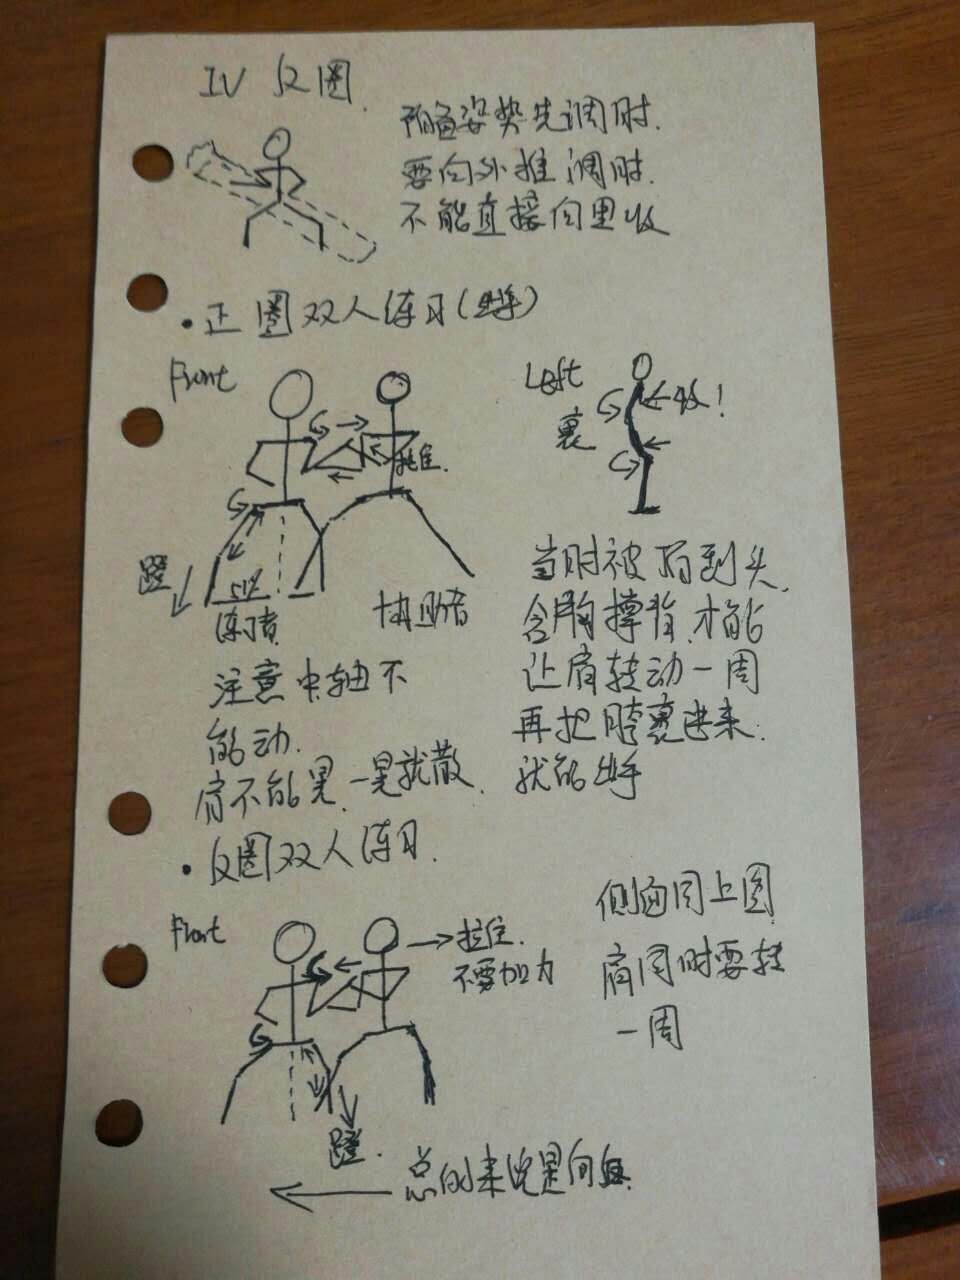 IV 反圈.
预备姿势先调肘.
要向外推调肘.
不能直接向里收
·正圈双人练习(出手)
Front
推.
蹬
练习者
协助者
Left
裹
收!
注意中轴不
能动.
肩不能晃.一晃就散.
当肘被
到头.
含胸撑背.才能
让肩转动一周
再把胯裹进来.
就能出手
·反圈双人练习.
Front
拉住.
不要加力
蹬.
侧面同上图
肩同时要转
一周
总的来说是向